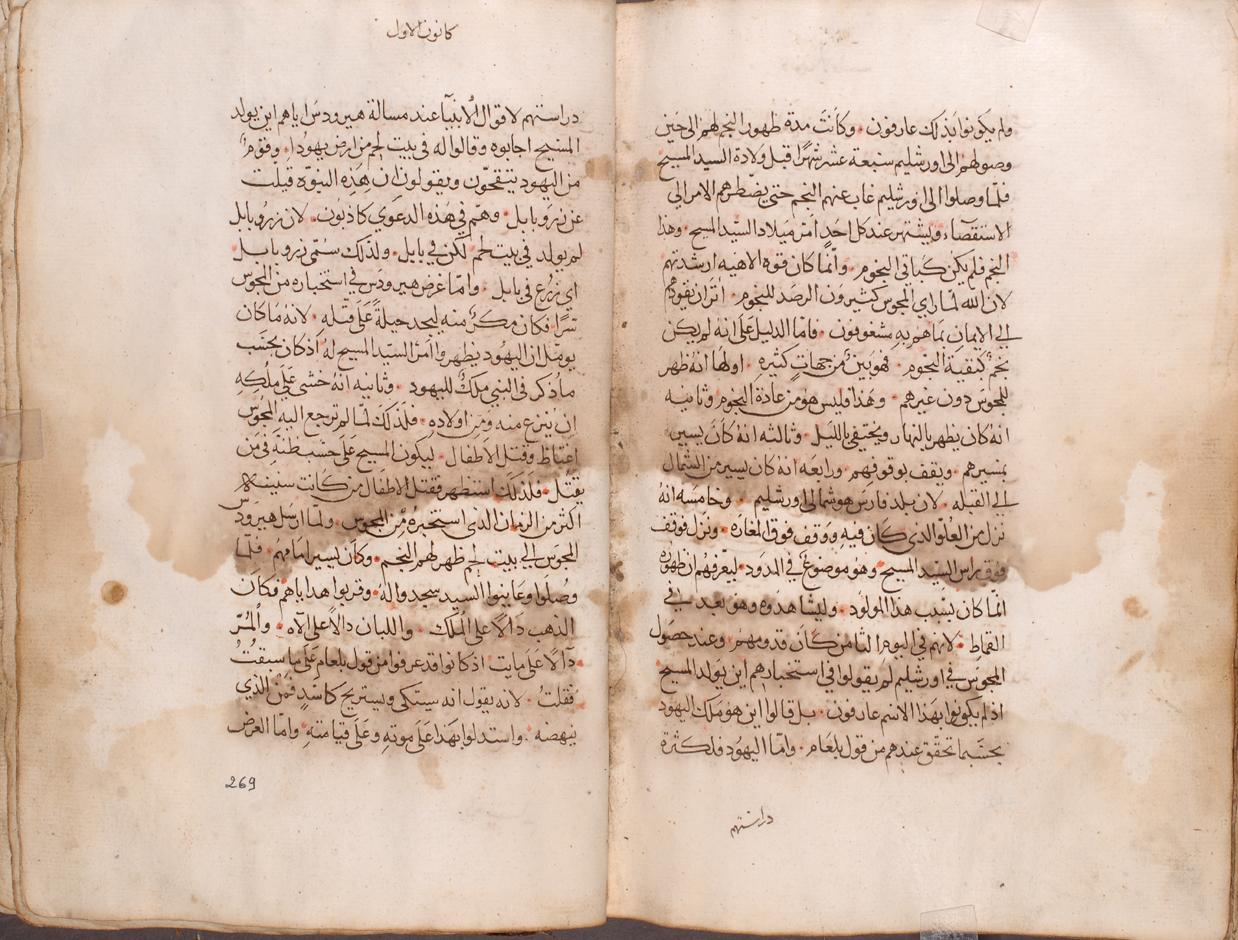 ولم يكونوا بذلك عارفون. وكانت مدة ظهور النجم لهم الى حين
وصولهم الى اورشليم سبعة عشر شهرًا قبل ولادة السيد المسيح
فلما وصلوا الى اورشليم غاب عنهم النجم حتى يضطرهم الامر الى
الاستقصاء ويشتهر عند كل احدٍ امر ميلاد السيد المسيح. وهذا
النجم فلم يكن كباقي النجوم. وانما كان قوه الاهيه ارشدتهم
لان الله لما راي المجوس كثيرون الرصد للنجوم. اثر ان يقودهم
الى الايمان بما هم به مشغوفون. فاما الدليل على انه لم يكن
نجم كبقية النجوم. فهو بين من جهاتٍ كثيره. اولها انه ظهر
للمجوس دون غيرهم. وهذا فليس هو من عادة النجوم وثانيه
انه كان يظهر بالنهار ويختفي بالليل. وثالثه انه كان يسير
بمسيرهم. ويقف بوقوفهم. ورابعه انه كان يسير من الشمال
الى القبله. لان بلد فارس هو شمالي اورشليم. وخامسه انه
نزل من العلو الذي كان فيه ووقف فوق المغاره. ونزل فوقف
فوق راس السيد المسيح. وهو موضوع في المدود. ليعرفهم ان ظهوره
انما كان بسبب هذا المولود. وليشاهدوه وهو بعد في
القماط. لانهم في اليوم الثامن كان قدومهم. وعند حصول
المجوس في اورشليم لم يقولوا في استخبارهم اين يولد المسيح
اذ لم يكونوا بهذا الاسم عارفون. بل قالوا اين هو ملك اليهود
بحسبما تحقق عندهم من قول بلعام. واما اليهود فلكثرة
دراستهم
كانون الاول
دراستهم لاقوال الانبيآ عند مسالة هيرودس اياهم اين يولد
المسيح اجابوه وقالوا له في بيت لحم من ارض يهودا. وقوم
من اليهود يتقحّون ويقولون ان هذه النبوه قيلت
عن زروبابل. وهم في هذه الدعوي كاذبون. لان زروبابل
لم يولد في بيت لحم لكن في بابل. ولذلك سمّي زروبابل
اي زرع في بابل. واما غرض هيرودس في استخباره من المجوس
سرًا فكان مكرٌ منه ليجد حيلةً على قتله. لانه ما كان
يومّل ان اليهود يظهروا امر السيد المسيح له اذ كان بحسب
ما ذكر في النبي ملكٌ لليهود. وثانيه انه خشى على ملكه
ان ينزع منه ومن اولاده. فلذلك لما لم ترجع اليه المجوس
اغتاظ وقتل الاطفال. ليكون المسيح على حسب ظنه في من
يقتل. فلذلك استظهر فقتل الاطفال من كانت سنينه
اكثر من الزمان الذي استخبره من المجوس. ولما ارسل هيرودس
المجوس الى بيت لحم ظهر لهم النجم. وكان يسير امامهم. فلما
وصلوا وعاينوا السيد سجدوا له. وقربوا هداياهم فكان
الذهب دالًا على الملك. واللبان دالًا على الآه. والمرّ
دآلًا على مايت اذ كانوا قد عرفوا من قول بلعام على ما سبقتُ
فقلتُ. لانه يقول انه يتكى ويستريح كاسدٍ فمن الذي
ينهضه. واستدلوا بهذا على موته وعلى قيامته. واما الغرض
269